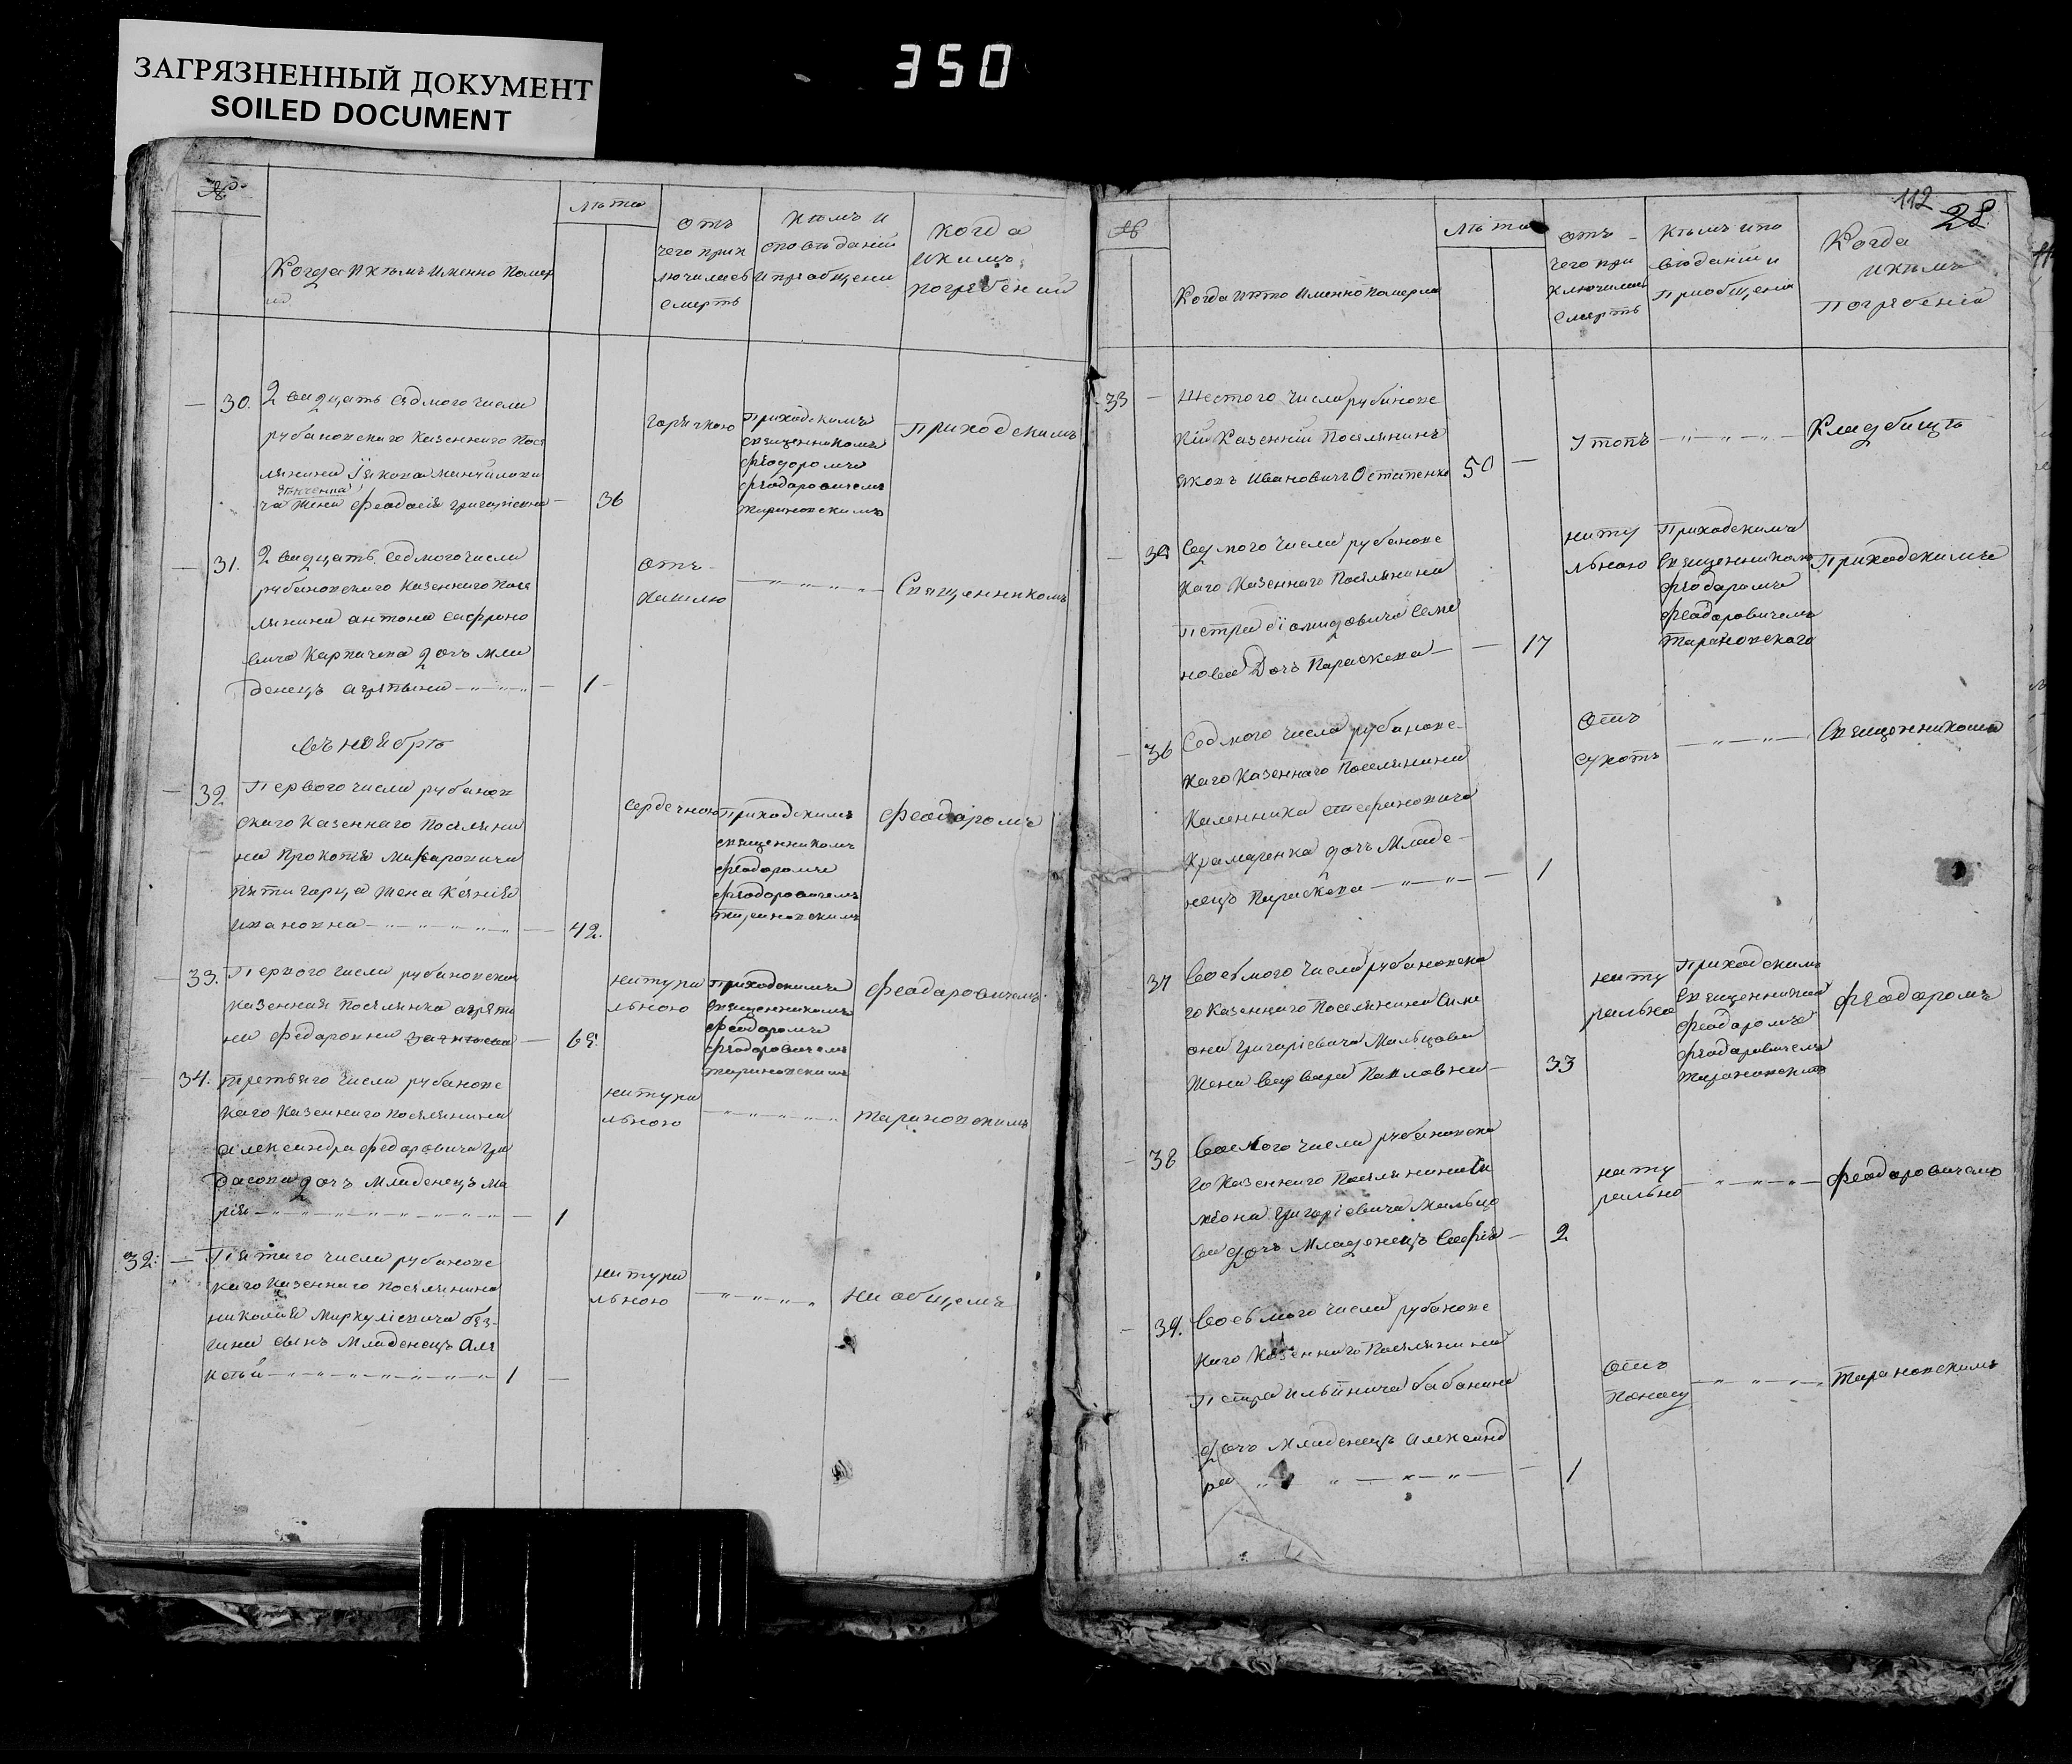 ЗАГРЯЗНЕННЫЙ ДОКУМЕНТ
SOILED DOCUMENT
350
№
Когда и кто именно помер
лѣта
отъ
чего прик
лючилась
смерть
кѣмъ и
споведаніи
и пріобщени
когда
и кимъ
погребеній
30.
Двадцать седмого числа
рубановскаго казеннаго посе
лянина
жена Феодосія Григориевна
36
горячкою
приходскимъ
священникомъ
Феодоромъ
Феодоровичемъ
Тарановскимъ
приходскимъ
31.
Двадцать седмого числа
рубановскаго казеннаго посе
лянина антона сафроно
вича Карпичена дочь мла
денецъ агрѣпина
1
отъ
кашлю
Священникомъ
въ ноябрѣ
32
Первого числа рубанов
скаго казеннаго поселяни
на Прокопія Макаровича
пятигорца жена Ксенія
Ивановна
42.
сердечною
приходскимъ
священникомъ
Феодоромъ
Феодоровичемъ
Тарановскимъ
Феодоромъ
33.
Первого числа рубановская
казенная поселянка агрѣпи
на Федоровна
65
натура
льною
приходскимъ
священникомъ
Феодоромъ
Феодоровичемъ
Тарановскимъ
Феодоровичемъ
34.
третьяго числа рубановс
каго казеннаго поселянина
александра федоровича Гри
дасова дочь младенецъ Ма
рія
1
натура
льною
Тарановскимъ
32.
Пятаго числа рубановс
каго казеннаго поселянина
николая Меркуліевича без
сынъ младенецъ Але
ксѣй
1
натура
льною
на общемъ
112
28
№
Когда и кто именно померли
Лѣта
отъ
чего при
ключилась
смерть
Кѣмъ испо
вѣданіи и
приобщени
Когда
и кѣмъ
погребени
33
Шестого числа рубановс
кій казенній поселянинъ
яковъ Ивановичъ Остапенко
50
утопъ
Кладбищѣ
35
Седмого числа рубановс
каго казеннаго поселянина
Петра Діомидовича Семе
нова Дочь Параскева
17
нату
льною
Приходскимъ
Священникомъ
Феодоромъ
Феодоровичемъ
Тарановскаго
Приходскимъ
36
Седмого числа рубановс
каго казеннаго поселянина
Каленника стефановича
Крамаренка дочь Младе
нецъ Параскева
1
отъ
сухотъ
Священникомъ
37
Восьмого числа рубановска
го казеннаго поселянина Симе
она Григоріевича Мальцова
жена Варвара Павловна
33
нату
рально
Приходскимъ
Священникомъ
Феодоромъ
Феодоровичемъ
Тарановскимъ
Феодоромъ
38
Восьмого числа рубановска
го казеннаго поселянина Си
меона Григоріевича Мальцо
ва дочь младенецъ Софія
2
нату
рально
Феодоровичемъ
39.
Восьмого числа рубановс
каго казеннаго поселянина
Петра Ильинича бабанина
дочь младенецъ александ
ра
1
отъ
поносу
Тарановскимъ